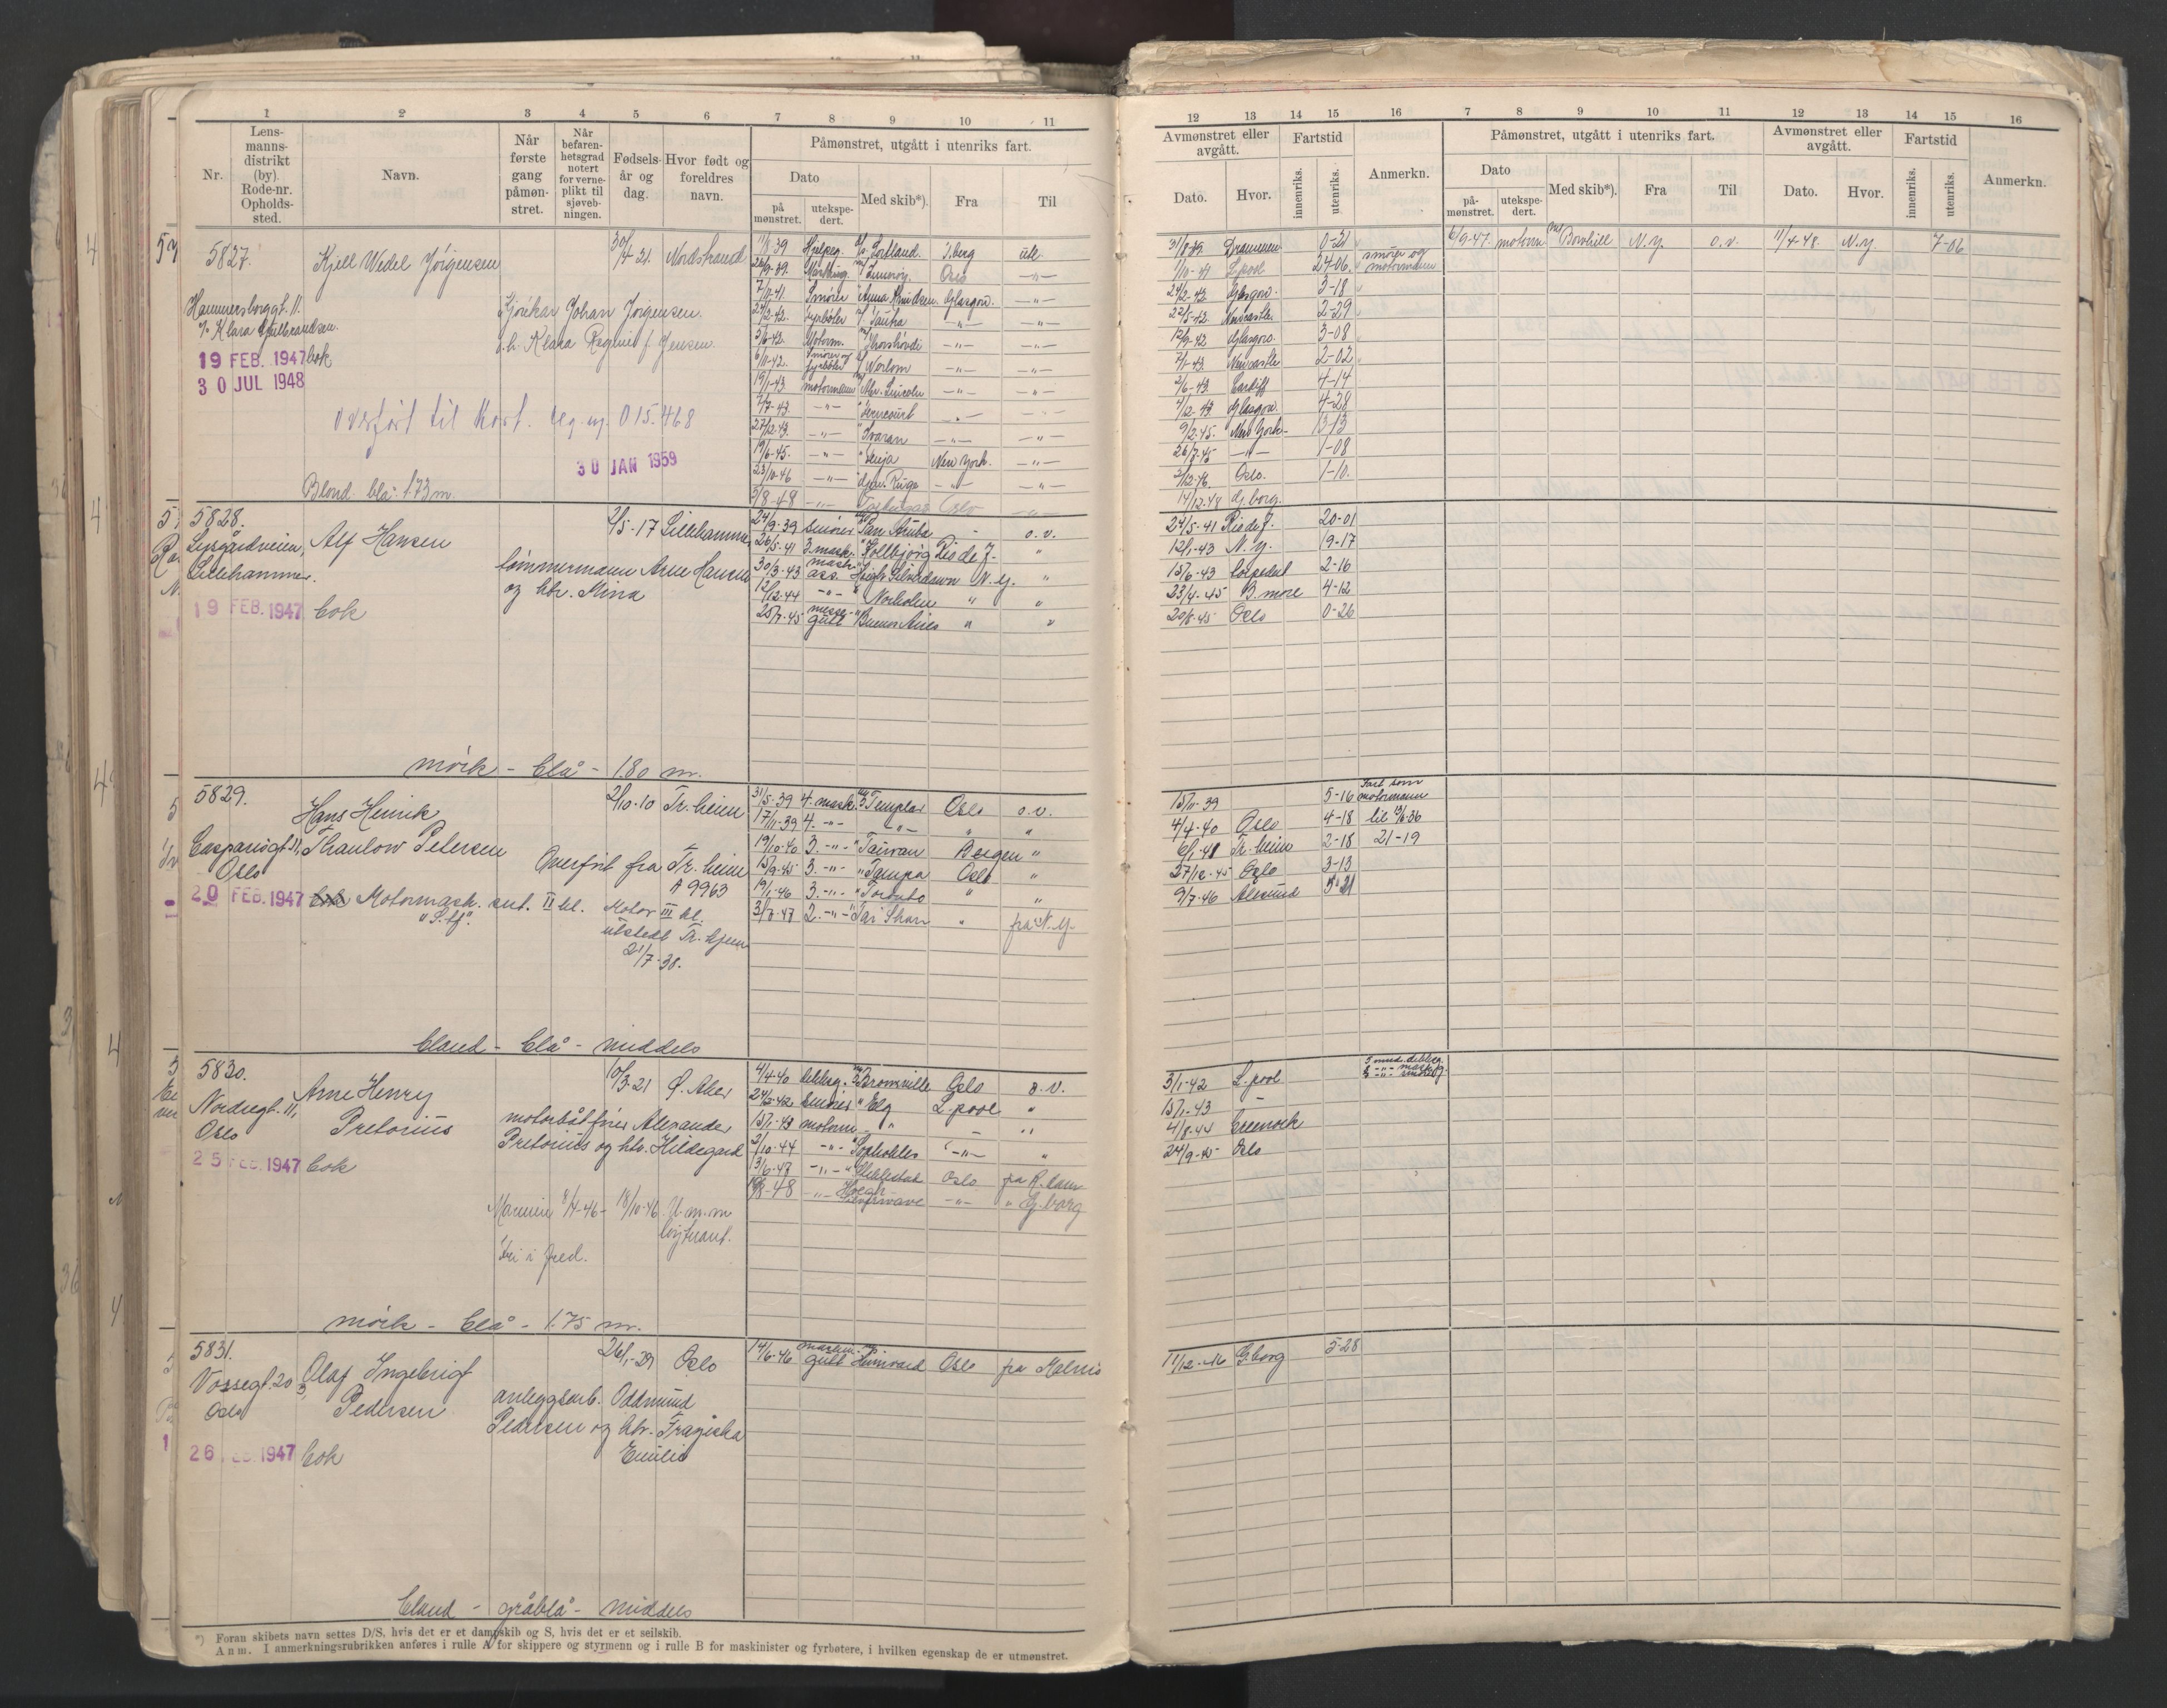 1 2 3 4 5 6 7 8 9 10 11
Nr.
Lens-
manns-
distrikt
(by).
Rode-nr.
Opholds-
sted.
Navn.
Når
første
gang
påmøn-
stret.
Når
befaren-
hetsgrad
notert
for verne-
plikt til
sjøveb-
ningen.
Fødsels-
år og
dag.
Hvor født og
foreldres
navn.
Påmønstret, utgått i utenriks fart.
Dato
på
mønstret.
utekspe-
dert.
Med skib*).
Fra
Til
5827. Kjell Wedel Jörgensen 30/4-21. Nordstrand
Hammersborggt. 11.
Klara Gulbrandsen.
Johan Jörgensen.
Klara Regine f. Jensen.
19 FEB. 1947 bok
30 JUL 1948
overført til kort. reg. nr. 015.468
30 JAN 1959
Blond. blå. 1.73 m.
11/8-39 Oslo
7/11-41. Smører Anna Knudsen. Glasgow. —"—
24/2-42. fyrbøter —"— —"—
3/6-42. Motorm. Thorshövdi —"— —"—
6/11-42. Smører og fyrbøter Norlom —"— —"—
19/1-43. motormann Abr. Lincoln —"— —"—
27/12-43. —"— Svaran —"— —"—
19/6-45. —"— New York. —"—
23/10-46 —"— —"— —"—
3/8-48 —"— Oslo —"—
5828. Alf Hansen 2/5-17 Lillehammer
Lillehammer.
tømmermann Arne Hansen
og htr. Mina
19 FEB. 1947 bok
24/9-39 smører San Aruba - o.v.
26/5-41 3. mask. Kollbjørg Rio de J. "
30/3-43 mask. ass. Höegh Silverdawn N.Y. "
12/12-44 —"— Norholm " "
25/7-45 messegutt Buenos Aires " "
mörk - blå - 1.80 m.
5829. Hans Henrik 2/10-10 Tr.heim
Casparisgt. 11, Thaulow Petersen
Oslo
Overført fra Tr.heim
A 9963
20 FEB. 1947 bok Motormask. sert. II kl.
Motor III kl.
utstedt Tr.hjem
21/7-38.
31/5-39 4. mask. Templar Oslo o.v.
17/11-39 4. —"— —"— " "
19/10-40 3. —"— Taiwan Bergen "
15/9-45 3. —"— Tampa Oslo "
19/1-46 3. —"— Toronto " "
3/7-47 2. —"— Tai Shan " fra N.Y.
bland - blå - middels
5830. Arne Henry 10/3-21 Ø. Aker
Nordregt. 11,
Oslo Pretorius
motorbåtfører Alexander
Pretorius og htr. Hildegard
25 FEB. 1947 bok
Marinen 8/4-46 - 18/10-46 U.m.m.
løytnant.
fri i fred.
4/4-40 dekksg. Bronxville Oslo o.v.
24/2-42 smører " Elg L.pool "
15/1-43 motorm. " - "
2/10-44 —"— Sophokles —"— "
3/6-47 —"— Oslo fra R.dam
10/8-48 —"— Höegh Silverwave —"— " G.borg
mörk - blå - 1.75 m.
5831. Olaf Ingebrigt 26/1-29 Oslo
Vossegt. 20
Oslo Pedersen
anleggsarb. Oddmund
Pedersen og htr. Fragiska
Emilie
26 FEB. 1947 bok
14/6-46 maskingutt Oslo fra Malmö
bland - gråblå - middels
*) Foran skibets navn settes D/S, hvis det er et dampskib og S, hvis det er et seilskib.
Anm. I anmerkningsrubrikken anføres i rulle A for skippere og styrmenn og i rulle B for maskinister og fyrbøtere, i hvilken egenskap de er utmønstret.
12 13 14 15 16 7 8 9 10 11 12 13 14 15 16
Avmønstret eller
avgått.
Dato. Hvor.
Fartstid
innenriks.
utenriks.
Anmerkn.
Påmønstret, utgått i utenriks fart.
Dato
på-
mønstret.
utekspe-
dert.
Med skib*). Fra Til
Avmønstret eller
avgått.
Dato. Hvor.
Fartstid
innenriks.
utenriks.
Anmerkn.
31/8-39. Drammen 0-21
6/9-47. motorm Bowhill N.Y. o.v. 11/4-48. N.Y. 7-06
L.pool 24-06. smører og motormann
24/2-42 Glasgow. 3-18
22/5-42. Newcastle. 2-29
12/9-42 Glasgow. 3-08
7/1-43. Newcastle 2-02
2/6-43. Cardiff 4-14
4/12-43. Glasgow. 4-28
9/2-45. New York- 13-13
26/7-45 —"— 1-08
2/12-46. Oslo. 1-10.
14/12-48 G.borg.
24/5-41 Rio de J. 20-01
12/1-43 N.Y. 19-17
15/6-43 torpedert 2-16
23/4-45 B.more 4-12
20/8-45 Oslo 0-26
15/11-39 5-16 Fart som motormann
4/4-40 Oslo 4-18
6/1-41 Tr.heim 2-18 21-19
27/12-45 Oslo 3-13
9/7-46 Ålesund 5-21
3/1-42 L.pool
15/1-43 -
4/8-44 Greenock
24/9-45 Oslo
11/12-46 G.borg 5-28